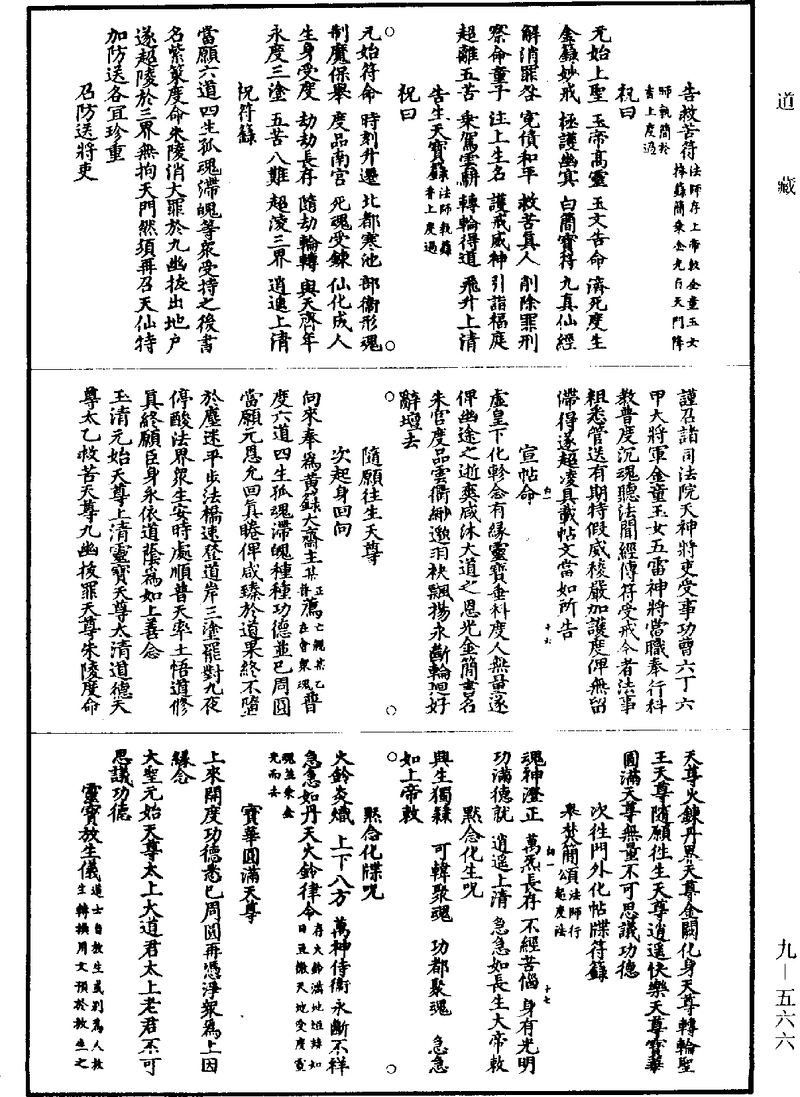 道藏
告救苦符法師存上帝敕金童玉女
師執簡於
告上度過
祝曰
元始上聖　玉帝高靈　玉文告命　濟死度生
金籙妙戒　極護幽冥　白簡寶符　九真仙經
解消罪咎　寃債和平　救苦真人　削除罪刑
察命童子　注上生名　護戒威神　引詣福庭
超離五苦　乘駕雲軿　轉輪得道　飛升上清
告生天寶籙法師執籙
香上度過
祝曰
元始符命　時刻升遷　北都寒池　部衛形魂
制魔保舉　度品南宮　死魂受鍊　仙化成人
生身受度　劫劫長存　隨劫輪轉　與天齊年
永度三塗　五苦八難　超淩三界　逍遙上清
祝符籙
當願六道四生孤魂滯魄等衆受持之後書
名紫策度命朱陵消大罪於九幽拔出地戶
遂超陵於三界無拘天門然須再召天仙特
加防送各宜珍重
召防送將吏
謹召諸司法院天神將吏受事功曹六丁六
甲大將軍金童玉女五雷神將當職奉行科
教普度沉魂聽法聞經傳符受戒今者法事
粗悉管送有期特假威稜嚴加護度俾無留
滯得遂超凌具載帖文當如所告
宣帖命
虛皇下化軫念有緣靈寶垂科度人無量遂
俾幽途之逝爽咸沐大道之恩光金簡書名
朱宮度品雲衢緲邈羽袂飄揚永斷輪迴好
辭壇去
隨願往生天尊
次起身回向
向來奉為黃籙大齋主某薦普
度六道四生孤魂滯魄種種功德並已周圓
當願元恩允回真睠俾咸臻於道果終不墮
於塵迷平步法橋速登道岸三塗罷對九夜
停酸法界眾生安時處順普天率土悟道修
真終願臣身永依道蔭為如上善念
玉清元始天尊上清靈寶天尊太清道德天
尊太乙救苦天尊九幽拔罪天尊朱陵度命
天尊火鍊丹界天尊金闕化身天尊轉輪聖
王天尊隨願往生天尊逍遙快樂天尊寶華
圓滿天尊無量不可思議功德
次往門外化帖牒符籙
舉焚簡頌法師行
起度法
魂神澄正　萬炁長存　不經苦惱　身有光明
功滿德就　逍遥上清　急急如長生大帝敕
默念化生呪
與生獨籙　可韓聚魂　功都聚魂　急急
如上帝敕
默念化牒呪
火鈴炎熾　上下八方　萬神侍衛　永斷不祥
急急如丹天火鈴律令
光而去
寶華圓滿天尊
上來開度功德悉已周圓再憑淨衆為上因
緣念
大聖元始天尊太上大道君太上老君不可
思議功德
靈寶放生儀道士自放生或別為人放
生轉換用文預於放生之
九—五六六